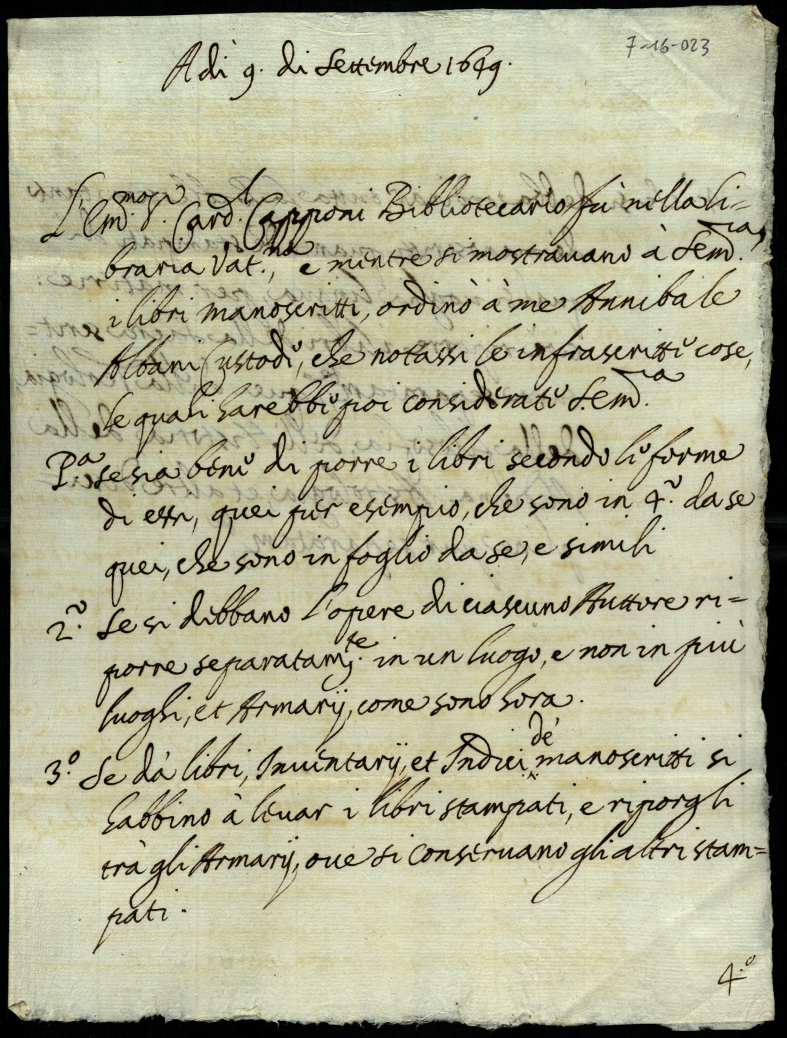 7-16-023
A dì 9. di Settembre 1649.
L'Em.mo S.r Card.l Capponi Bibliotecario fù nella Li=
braria Vat.na, e mentre si mostrauano à S. Em.za
i libri manoscritti, ordinò à me Annibale
Albani Custode, che notassi le infrascritte cose,
le quali harebbe poi considerate S. Em.za
P.a se sia bene di porre i libri secondo le forme
di essi, quei per esempio, che sono in 4.o da se
quei, che sono in foglio da se, e simili
2.o Se si debbano l'opere di ciascuno Auttore ri=
porre separatam.te in un luogo, e non in più
luoghi, et Armarij, come sono hora.
3.o Se dà libri, Inuentarij, et Indici de' manoscritti si
habbino à leuar i libri stampati, e riporgli
trà gli Armarij, oue si conseruano gli altri stam=
pati.
4.o